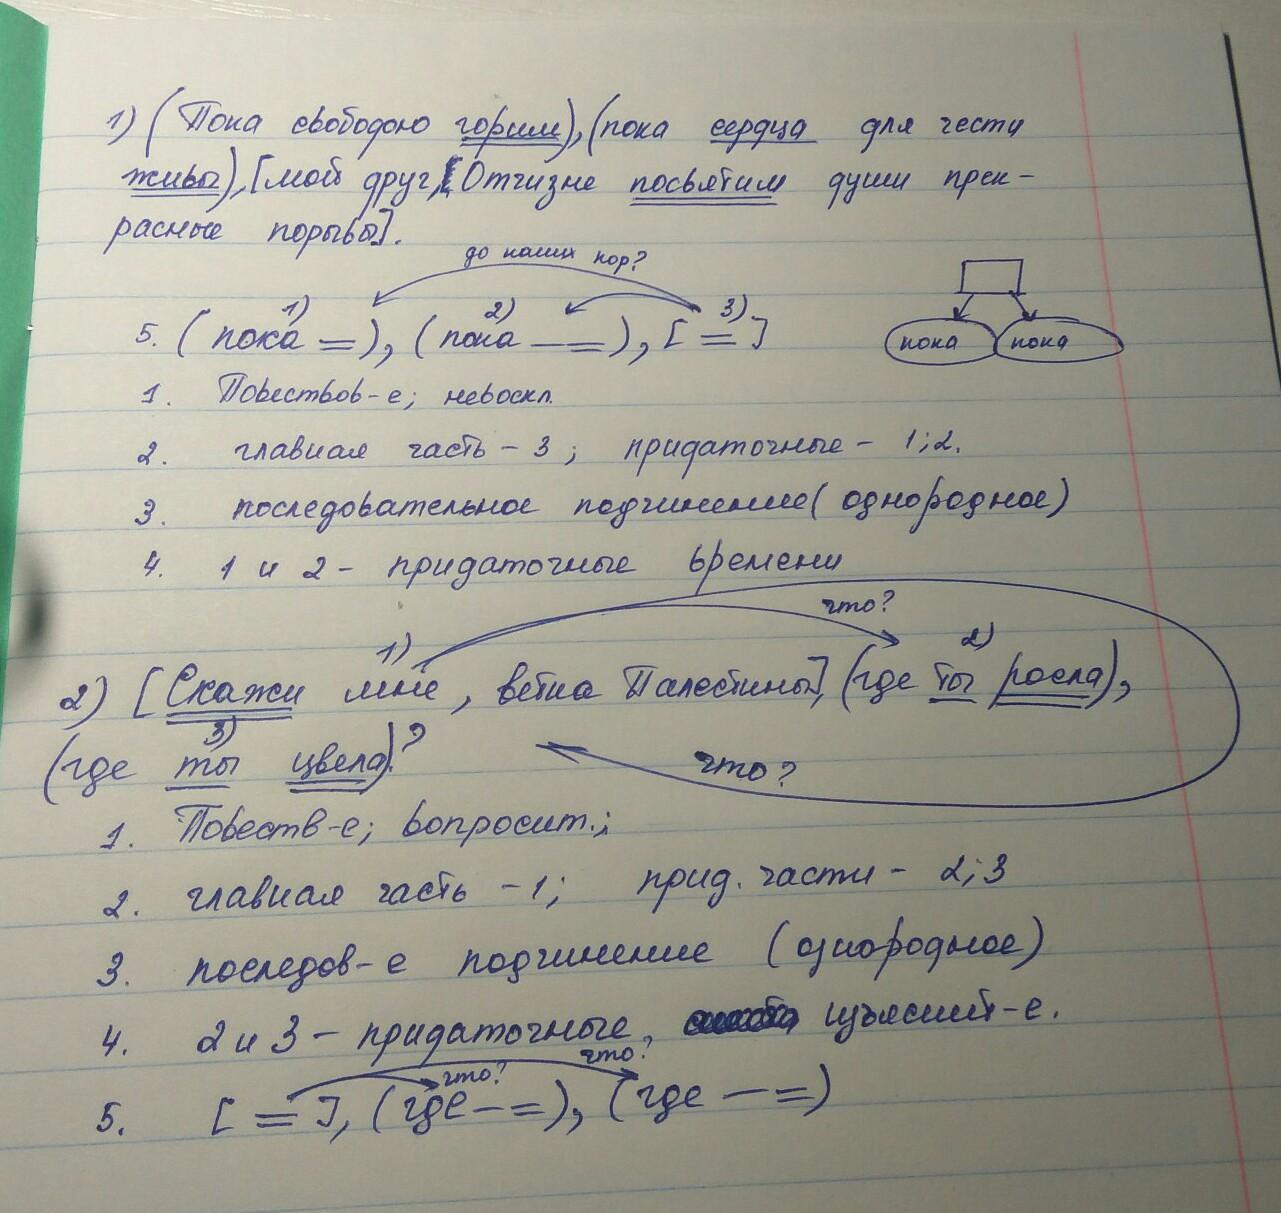 1) (Пока свободою горим), (пока сердца для чести
живы), [мой друг, Отчизне посвятим души прек-
расные порывы].
до каких пор?
1) 2) 3)
5. (пока =), (пока — =), [ = ]
пока пока
1. Повествов-е; невоскл.
2. главная часть - 3; придаточные - 1; 2.
3. последовательное подчинение (однородное)
4. 1 и 2 - придаточные времени
что?
1) 2)
2) [Скажи мне, ветка Палестины], (где ты росла),
3)
(где ты цвела)?
что?
1. Повеств-е; вопросит.;
2. главная часть - 1; прид. части - 2; 3
3. последов-е подчинение (однородное)
4. 2 и 3 - придаточные, изъяснит-е.
что? что?
5. [ = ], (где — =), (где — =)